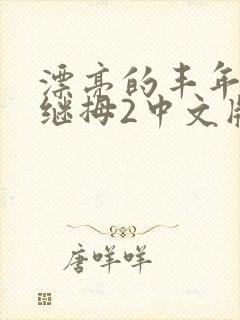 漂亮的丰年
继拇2中文版
唐咩咩